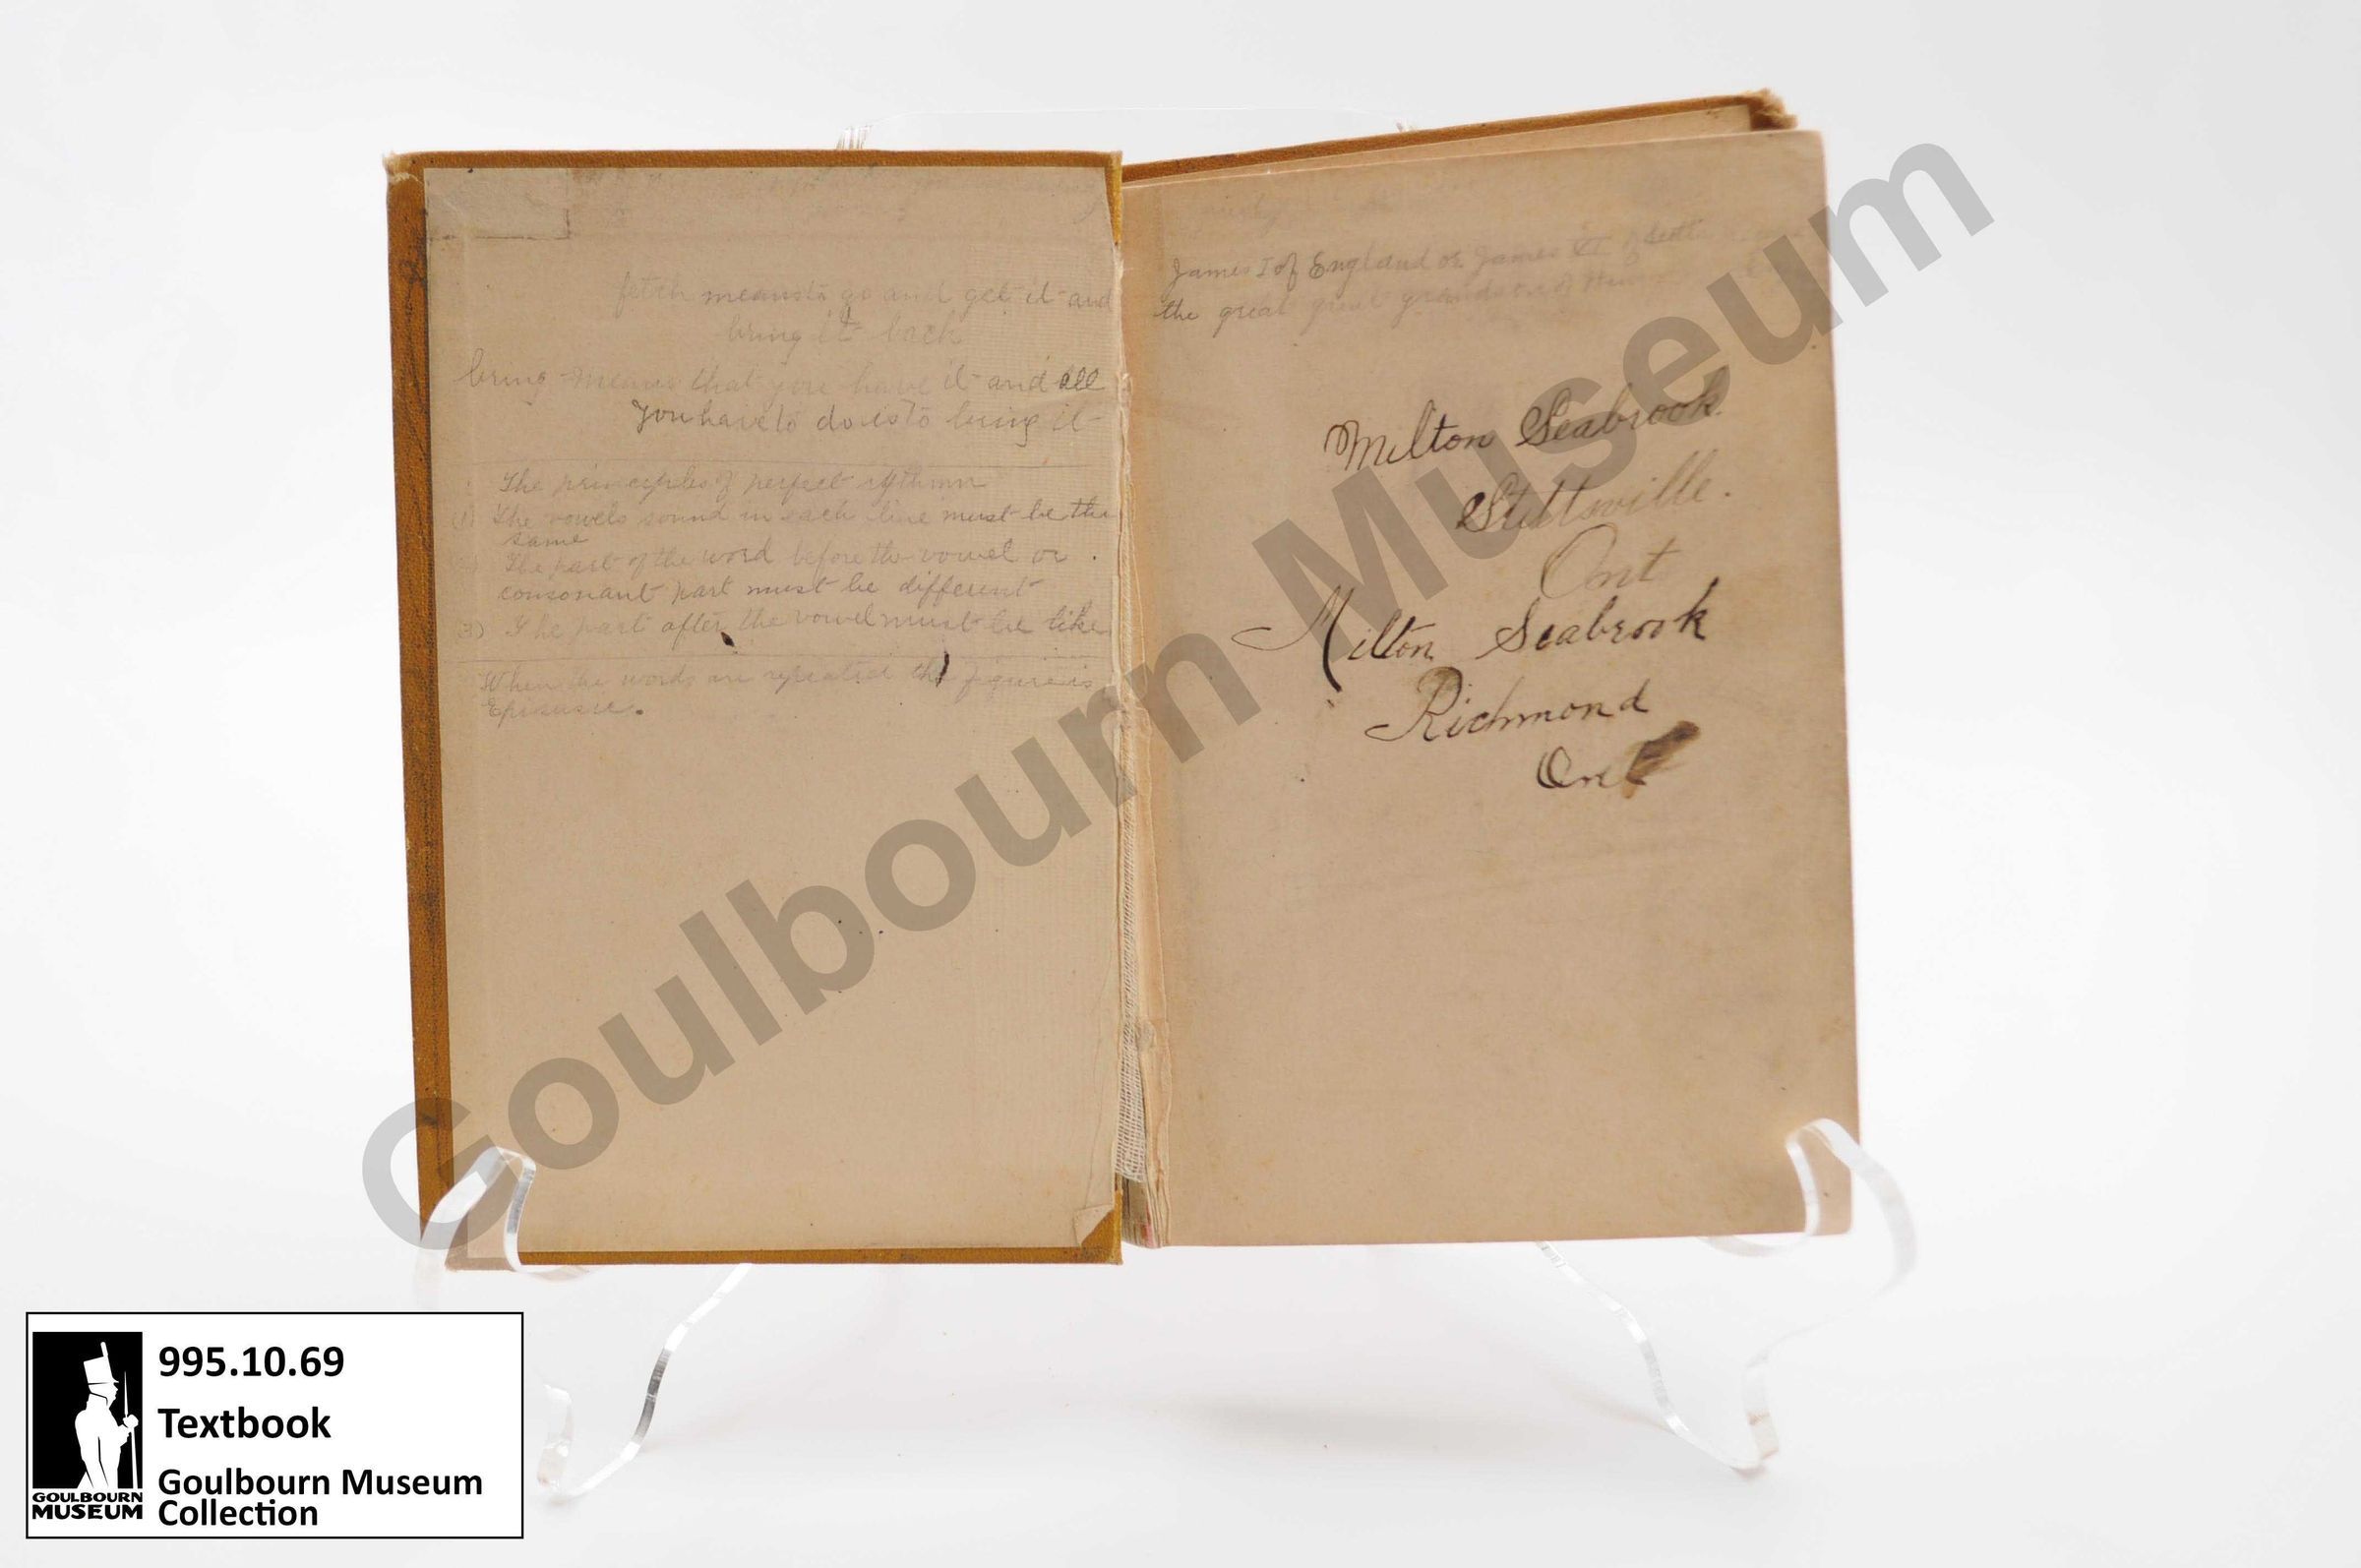 fetch means to go and get it and
bring it back
bring means that you have it and all
you have to do is to bring it
The principles of perfect rythmn
(1) The vowels sound in each line must be the
same
The part of the word before the vowel or
consonant part must be different
3) The part after the vowel must be like
When the words are repeated the figure is
James I of England or James VI of
the great great
Milton Seabrook.
Stittsville.
Ont
Milton Seabrook
Richmond
Ont
Goulbourn Museum
995.10.69
Textbook
Goulbourn Museum
Collection
GOULBOURN
MUSEUM